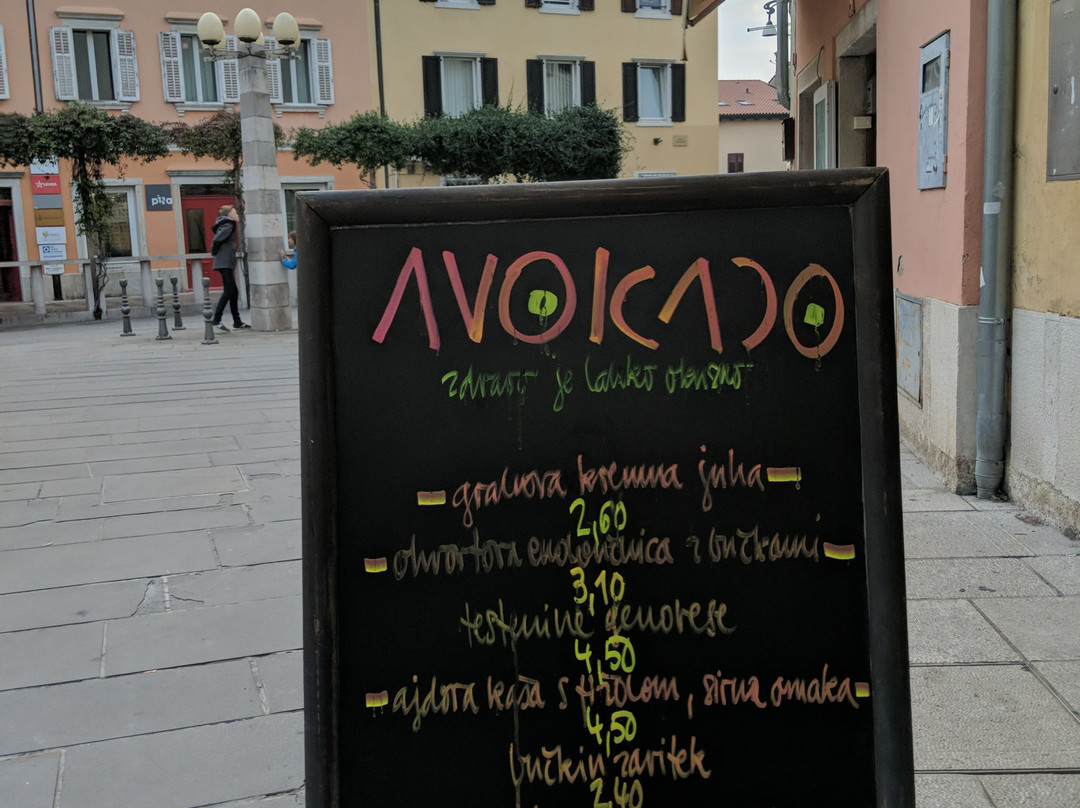 AVOKADO
zdravo je lahko okusno
grahova kremna juha
2,60
ohrovtova enolončnica z bučkami
3,10
testenine genovese
4,50
ajdova kaša s fižolom, sirna omaka
4,50
bučkin zavitek
2,40
pika